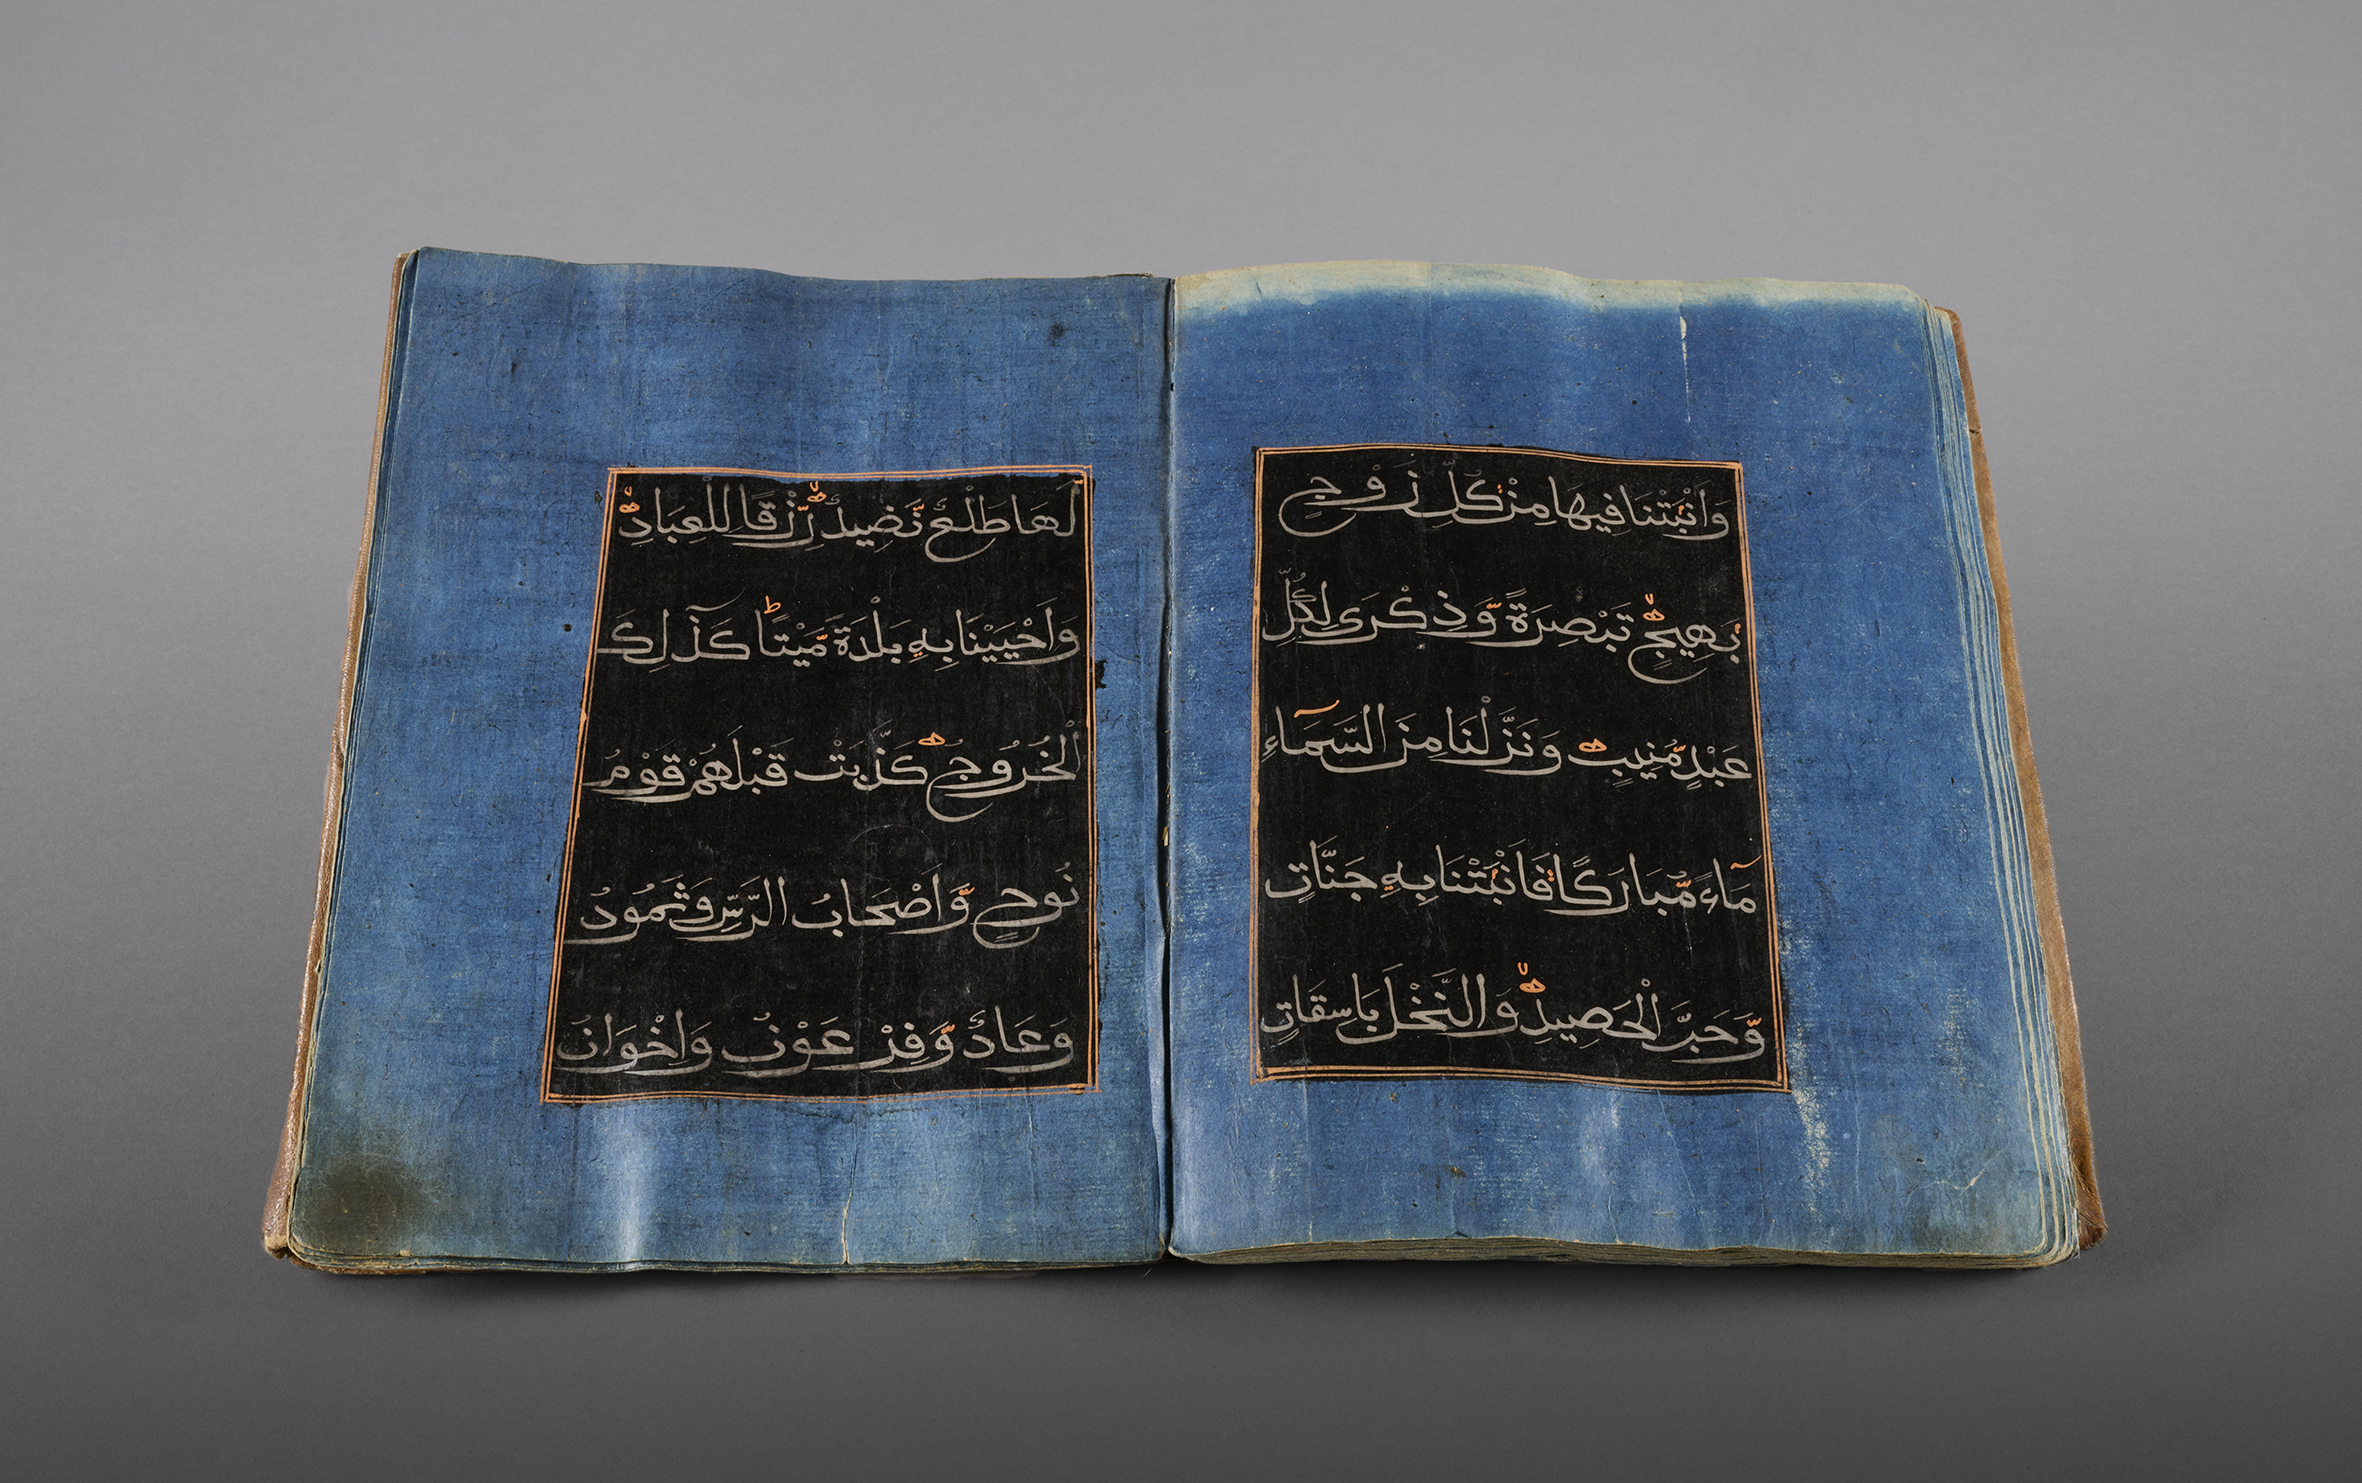 وَاَنْبَتْنَا فِيهَا مِنْ كُلِّ زَوْجٍ
بَهِيجٍ تَبْصِرَةً وَّذِكْرَى لِكُلِّ
عَبْدٍ مُّنِيبٍ وَنَزَّلْنَا مِنَ السَّمَآءِ
مَآءً مُّبَارَكًا فَاَنْبَتْنَا بِهِ جَنَّاتٍ
وَّحَبَّ الْحَصِيدِ وَالنَّخْلَ بَاسِقَاتٍ
لَهَا طَلْعٌ نَّضِيدٌ رِّزْقًا لِلْعِبَادِ
وَاَحْيَيْنَا بِهِ بَلْدَةً مَّيْتًا كَذَلِكَ
الْخُرُوجُ كَذَّبَتْ قَبْلَهُمْ قَوْمُ
نُوحٍ وَّاَصْحَابُ الرَّسِّ وَثَمُودُ
وَعَادٌ وَّفِرْعَوْنُ وَاِخْوَانُ